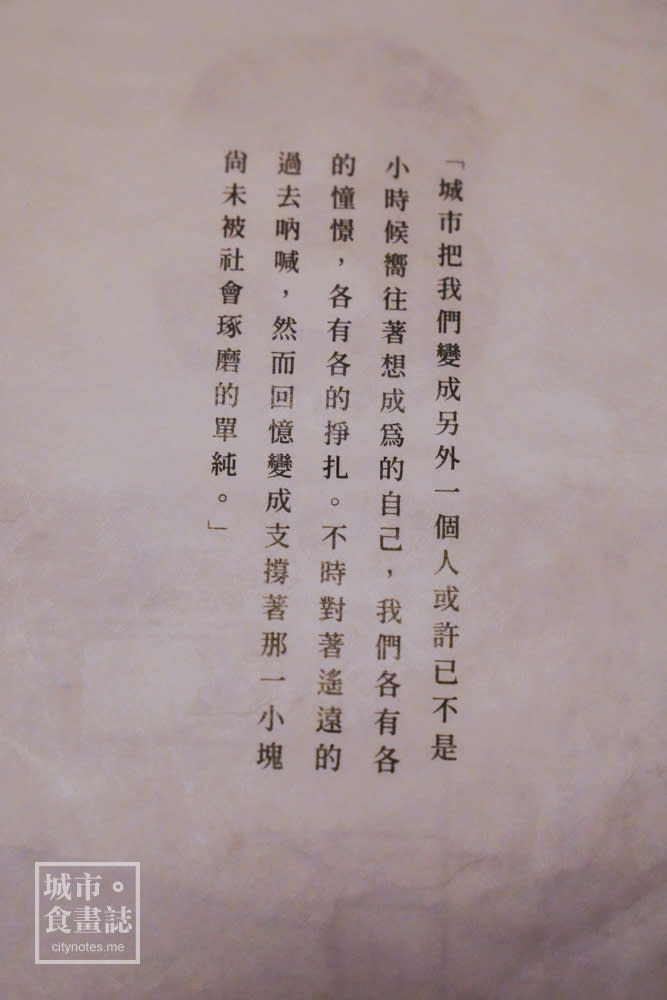 「城市把我們變成另外一個人或許已不是
小時候嚮往著想成為的自己，我們各有各
的憧憬，各有各的掙扎。不時對著遙遠的
過去吶喊，然而回憶變成支撐著那一小塊
尚未被社會琢磨的單純。」
城市。
食畫誌
citynotes.me